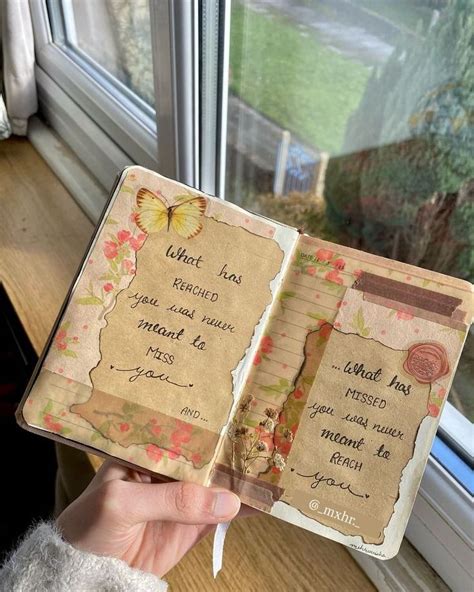 What has
REACHED
you was never
meant to
MISS
you
AND...
...What has
MISSED
you was never
meant to
REACH
you
@_mxhr._